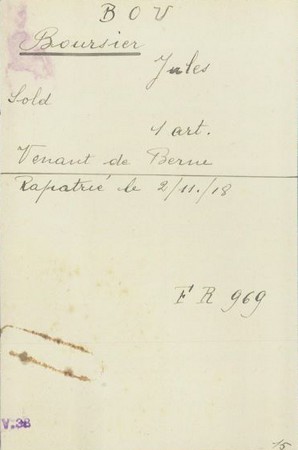 B O U
Boursier
Jules
Sold
1 art.
Venant de Berne
Rapatrié le 2/11./18
F R 969
V.38
15